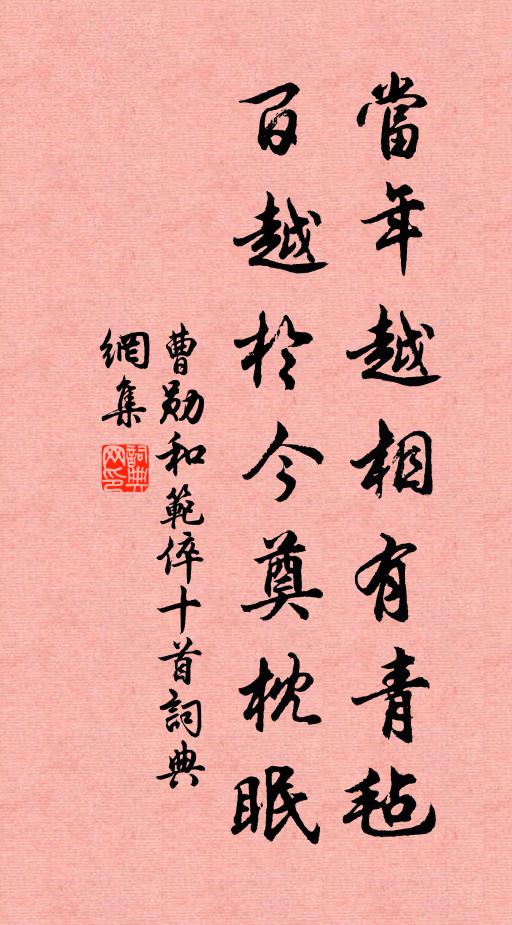 當年越相有青毡
百越於今奠枕眠
曹勛和範倅十首詞典
網集
詞典
网印